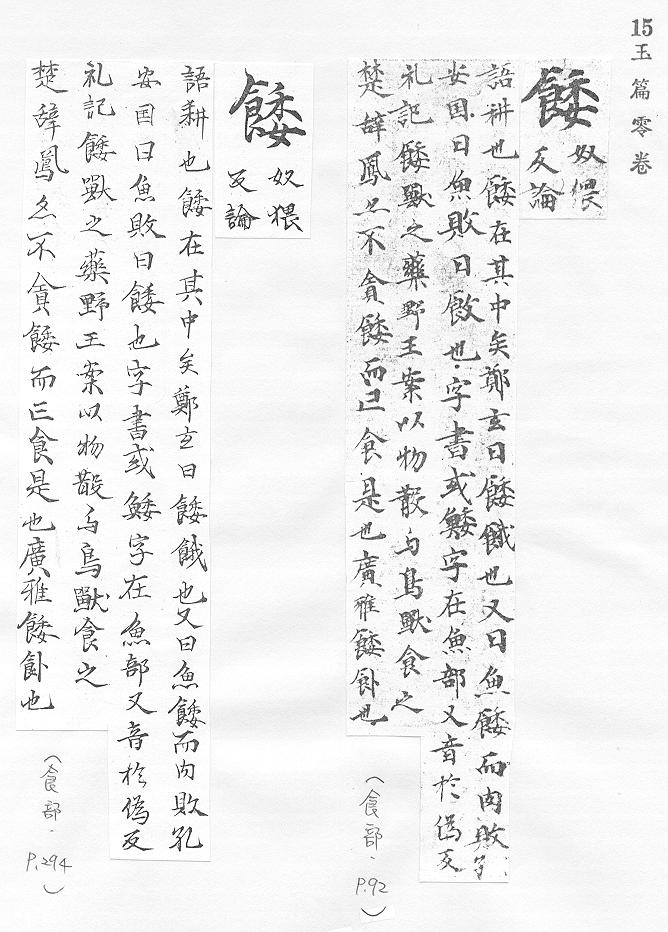 15玉篇零卷
餧
奴猥
反論
語耕也餧在其中矣鄭玄曰餧餓也又曰魚餧而肉敗
安国曰魚敗曰也字書或鮾字在魚部又音於偽反
礼記餧獸之藥野王案以物散与鳥獸食之
楚辝鳳亦不貪餧而食是也廣雅餧飤也
(食部.
P.92)
餧
奴猥
反論
語耕也餧在其中矣鄭玄曰餧餓也又曰魚餧而肉敗孔
安国曰魚敗曰餧也字書或鮾字在魚部又音於偽反
礼記餧獸之藥野王案以物散与鳥獸食之
楚辝鳳亦不貪餧而食是也廣雅餧飤也
(食部.
P.294)